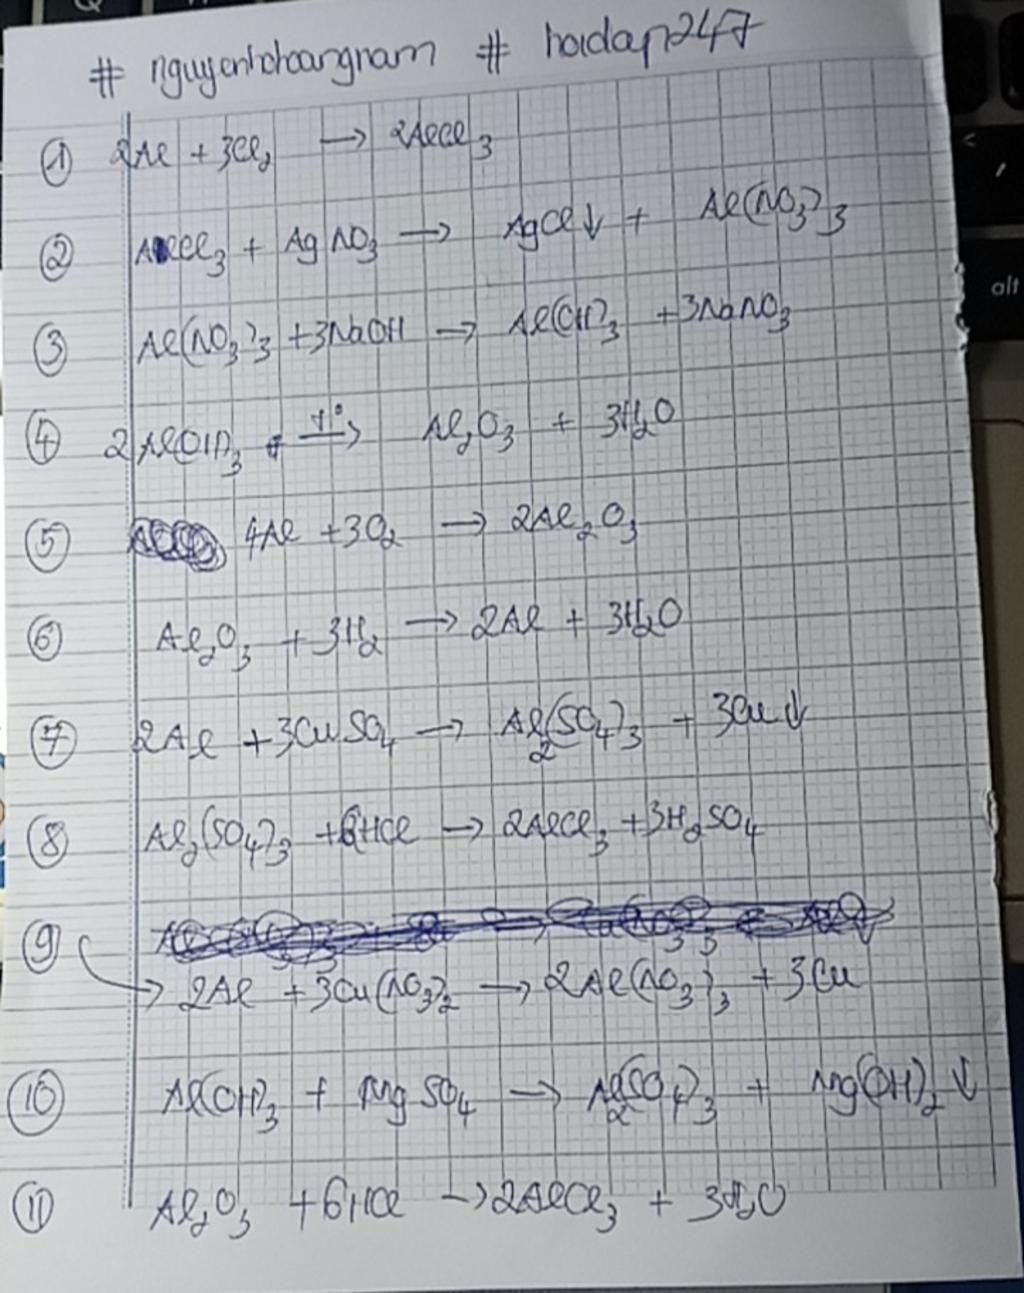 # nguyenhoangnam # hoidap247
① 2Al + 3Cl2 → 2AlCl3
② AlCl3 + AgNO3 → AgCl↓ + Al(NO3)3
③ Al(NO3)3 + 3NaOH → Al(OH)3 + 3NaNO3
④ 2Al(OH)3 t° → Al2O3 + 3H2O
⑤ 4Al + 3O2 → 2Al2O3
⑥ Al2O3 + 3H2 → 2Al + 3H2O
⑦ 2Al + 3CuSO4 → Al2(SO4)3 + 3Cu↓
⑧ Al2(SO4)3 + 6HCl → 2AlCl3 + 3H2SO4
⑨
→ 2Al + 3Cu(NO3)2 → 2Al(NO3)3 + 3Cu
⑩ Al(OH)3 + MgSO4 → Al2(SO4)3 + Mg(OH)2↓
⑪ Al2O3 + 6HCl → 2AlCl3 + 3H2O
alt